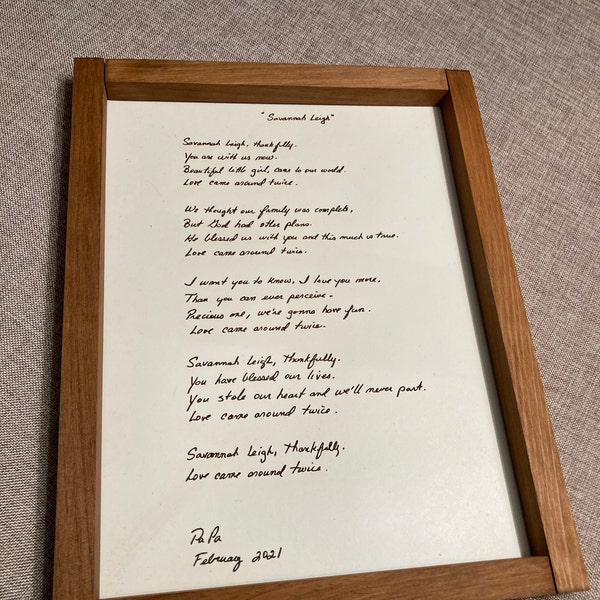 "Savannah Leigh"
Savannah Leigh, thankfully.
You are with us now.
Beautiful little girl, came to our world.
Love came around twice.
We thought our family was complete,
But God had other plans.
He blessed us with you and this much is true.
Love came around twice.
I want you to know, I love you more.
Than you can ever perceive.
Precious one, we're gonna have fun.
Love came around twice.
Savannah Leigh, thankfully.
You have blessed our lives.
You stole our heart and we'll never part.
Love came around twice.
Savannah Leigh, thankfully.
Love came around twice.
PaPa
February 2021